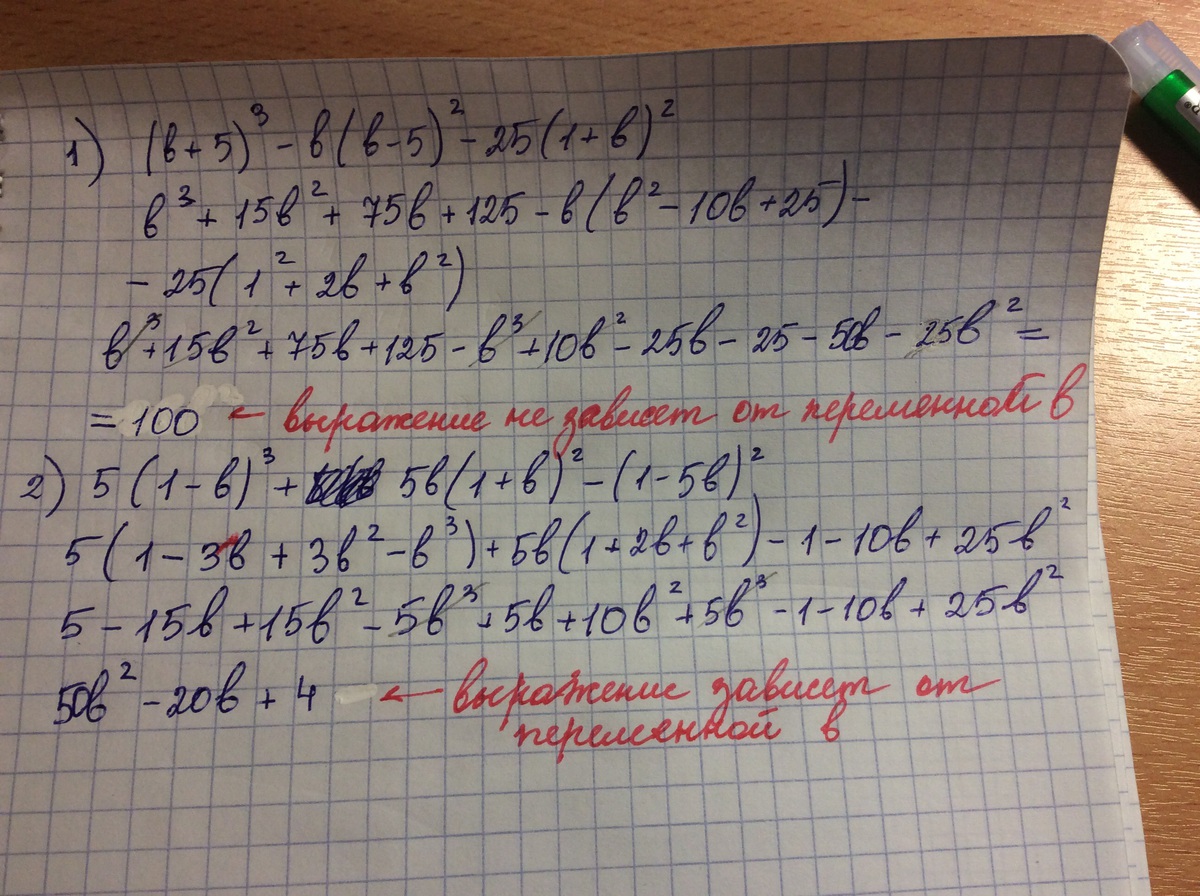 1) (в+5)³ - в(в-5)² - 25(1+в)²
в³ + 15в² + 75в + 125 - в(в² - 10в + 25) -
- 25(1² + 2в + в²)
в³ + 15в² + 75в + 125 - в³ + 10в² - 25в - 25 - 50в - 25в² =
= 100 ← выражение не зависет от переменной в
2) 5(1-в)³ + 5в(1+в)² - (1-5в)²
5(1 - 3в + 3в² - в³) + 5в(1+2в+в²) - 1 - 10в + 25в²
5 - 15в + 15в² - 5в³ + 5в + 10в² + 5в³ - 1 - 10в + 25в²
50в² - 20в + 4 ← выражение зависет от
переменной в